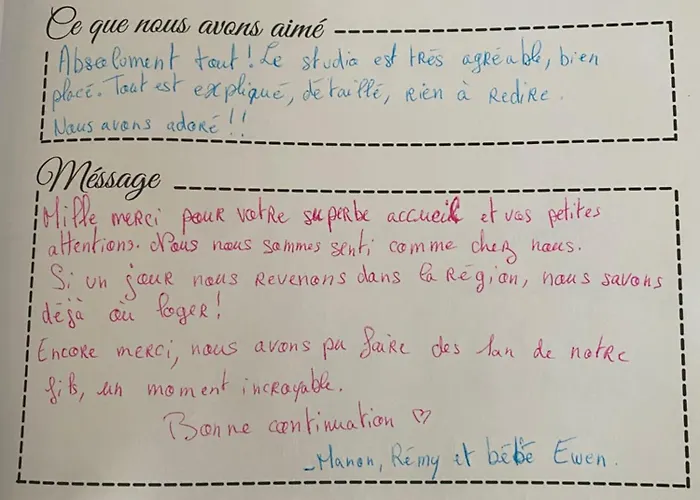 Ce que nous avons aimé
Absolument tout ! Le studio est très agréable, bien
placé. Tout est expliqué, détaillé, rien à redire.
Nous avons adoré !!
Méssage
Mille merci pour votre superbe accueil et vos petites
attentions. Nous nous sommes senti comme chez nous.
Si un jour nous revenons dans la région, nous savons
déjà où loger !
Encore merci, nous avons pu faire des 1an de notre
fils, un moment incroyable.
Bonne continuation ♡
- Manon, Rémy et bébé Ewen.